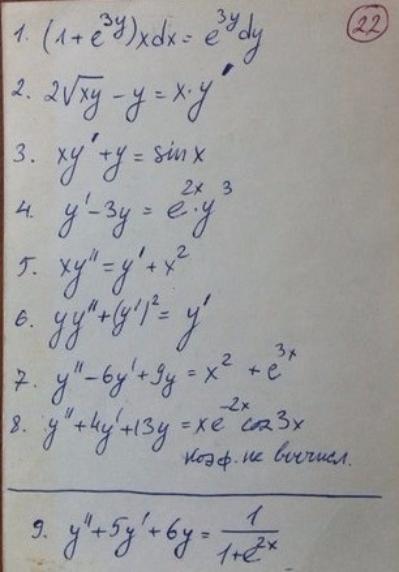 22
1. (1+e^{3y})xdx = e^{3y}dy
2. 2√xy - y = x·y'
3. xy' + y = sin x
4. y' - 3y = e^{2x}·y^3
5. xy'' = y' + x^2
6. yy'' + (y')^2 = y'
7. y'' - 6y' + 9y = x^2 + e^{3x}
8. y'' + 4y' + 13y = xe^{-2x} cos 3x
коэф. не вычисл.
9. y'' + 5y' + 6y = 1/(1+e^{2x})